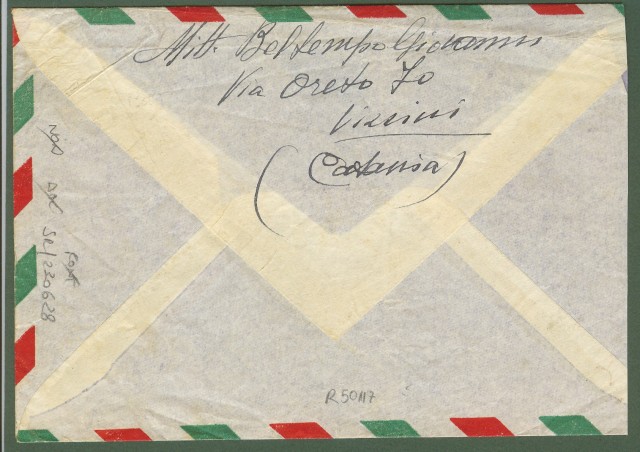 Mitt. Beltempo Giovanni
Via Oreto 70
Vizzini
(Catania)
R50117
SR/230628